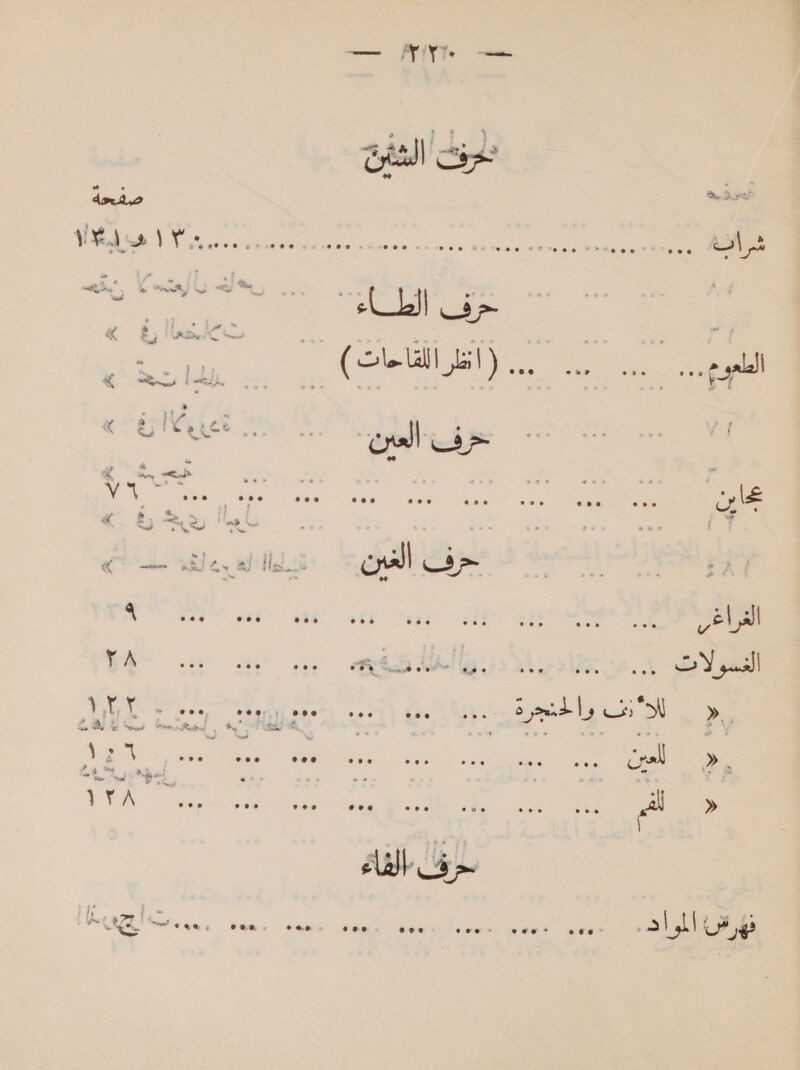 — ٢٢٠ —
حرف الشين
صفحة
شراب ... ١٣٠ و ١٣١
حرف الطاء
الطعوم ... ( انظر اللقاحات )
حرف العين
عجاين ... ٧٦
حرف الغين
الغراغر ... ٩
الغسولات ... ٢٨
« للأذن والحنجرة ... ١٢٢
« للعين ... ١٠٦
« للفم ... ١٢٨
حرف الفاء
فهرس المواد ... ج